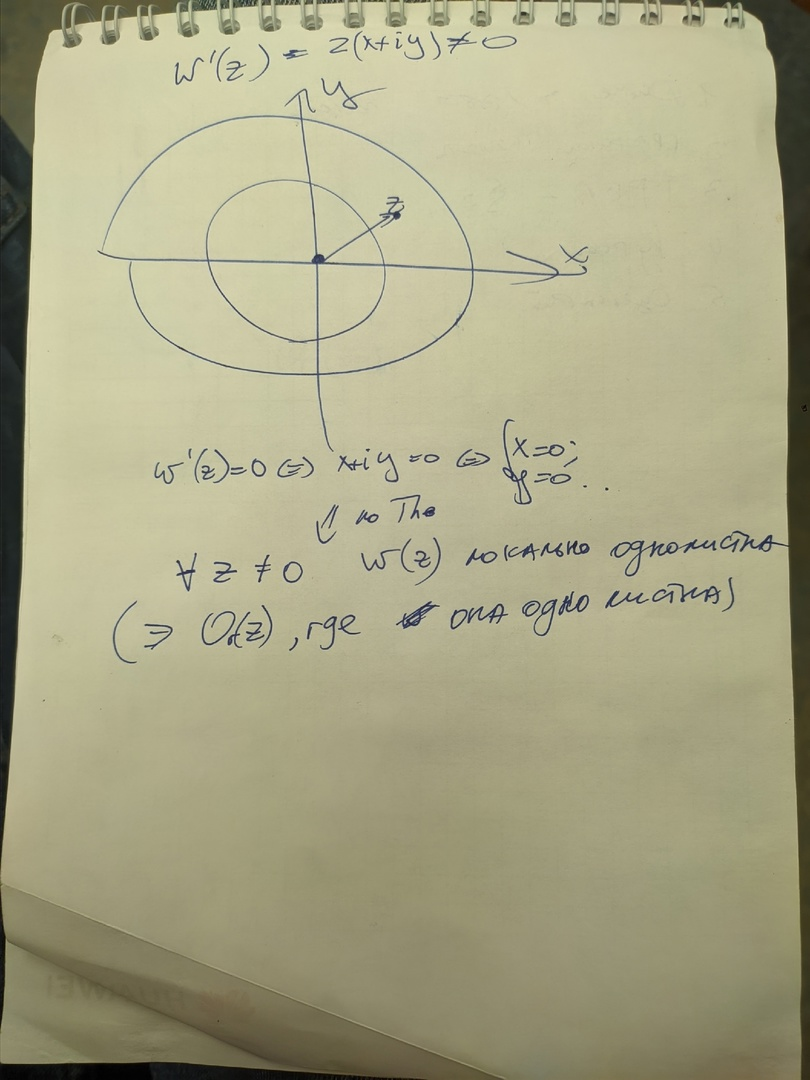 w'(z) = 2(x+iy) ≠ 0
y
z
x
w'(z)=0 ⇔ x+iy=0 ⇔ { x=0; y=0 ..
⇓ по Th
∀ z ≠ 0 w(z) локально однолистна
(∃ O(z), где она однолистна)
HUAWEI